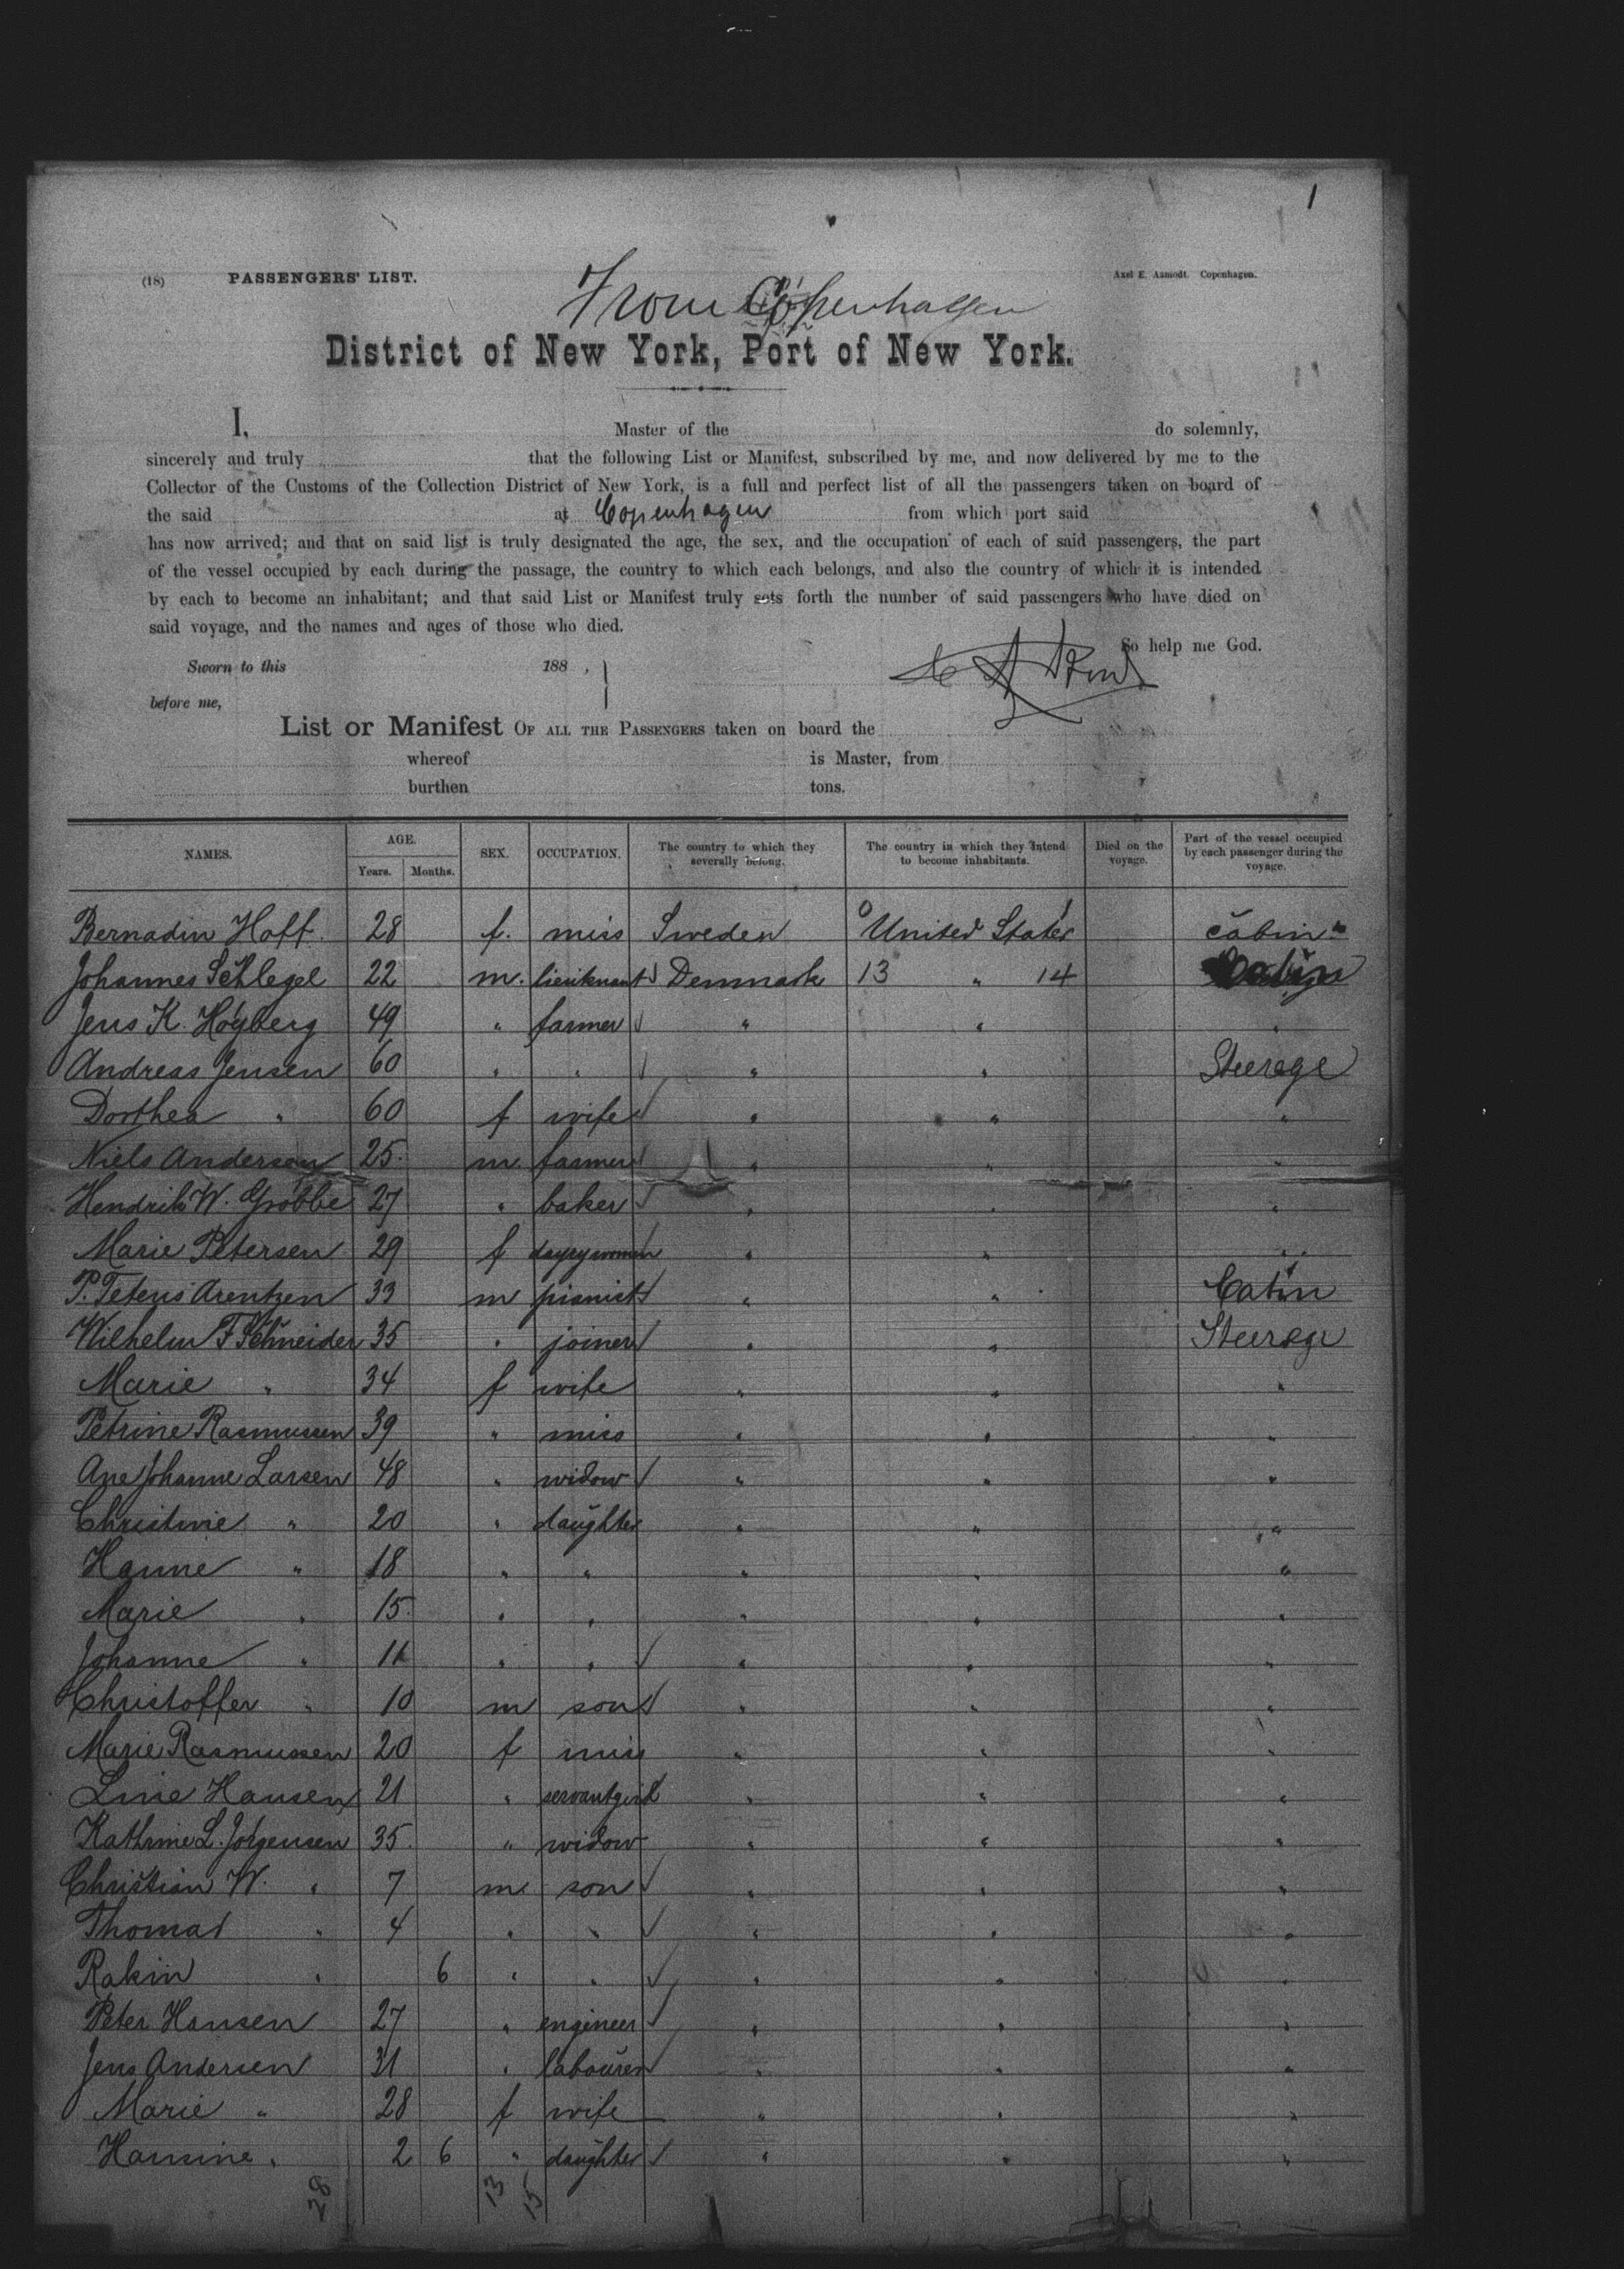 1
(18) PASSENGERS' LIST. Axel E. Aamodt. Copenhagen.
From Copenhagen
District of New York, Port of New York.
I, Master of the do solemnly,
sincerely and truly that the following List or Manifest, subscribed by me, and now delivered by me to the
Collector of the Customs of the Collection District of New York, is a full and perfect list of all the passengers taken on board of
the said at Copenhagen from which port said
has now arrived; and that on said list is truly designated the age, the sex, and the occupation of each of said passengers, the part
of the vessel occupied by each during the passage, the country to which each belongs, and also the country of which it is intended
by each to become an inhabitant; and that said List or Manifest truly sets forth the number of said passengers who have died on
said voyage, and the names and ages of those who died.
So help me God.
Sworn to this 188 ,
before me,
List or Manifest OF ALL THE PASSENGERS taken on board the
whereof is Master, from
burthen tons.
NAMES. AGE. Years. Months. SEX. OCCUPATION. The country to which they severally belong. The country in which they intend to become inhabitants. Died on the voyage. Part of the vessel occupied by each passenger during the voyage.
Bernadin Hoff. 28 f. miss Sweden 0 United States 1 cabin "
Johannes Schlegel 22 m. lieuknant Denmark 13 " 14
Jens K. Hoyberg 49 " farmer " " "
Andreas Jensen 60 " " " " Steerage
Dorthea " 60 f wife " " "
Niels Andersen 25. m. farmer " " "
Hendrik W. Grobbe 27 " baker " " "
Marie Petersen 29 f dayrywomen " " "
P. Arentzen 33 m pianist " " Cabin
Wilhelm F Schneider 35 " joiner " " Steerage
Marie " 34 f wife " " "
Petrine Rasmussen 39 " miss " " "
Ane Johanne Larsen 48 " widow " " "
Christine " 20 " daughter " " "
Hanne " 18 " " " " "
Marie " 15. " " " " "
Johanne " 11 " " " " "
Christoffer " 10 m son " " "
Marie Rasmussen 20 f miss " " "
Line Hansen 21 " servantgirl " " "
Kathrine L. Jörgensen 35. " widow " " "
Christian W. " 7 m. son " " "
Thomas " 4 " " " " "
Rakin " 6 " " " " "
Peter Hansen 27 " engineer " " "
Jens Andersen 31 " labourer " " "
Marie " 28 f wife " " "
Hansine " 2 6 " daughter " " "
28 13 15